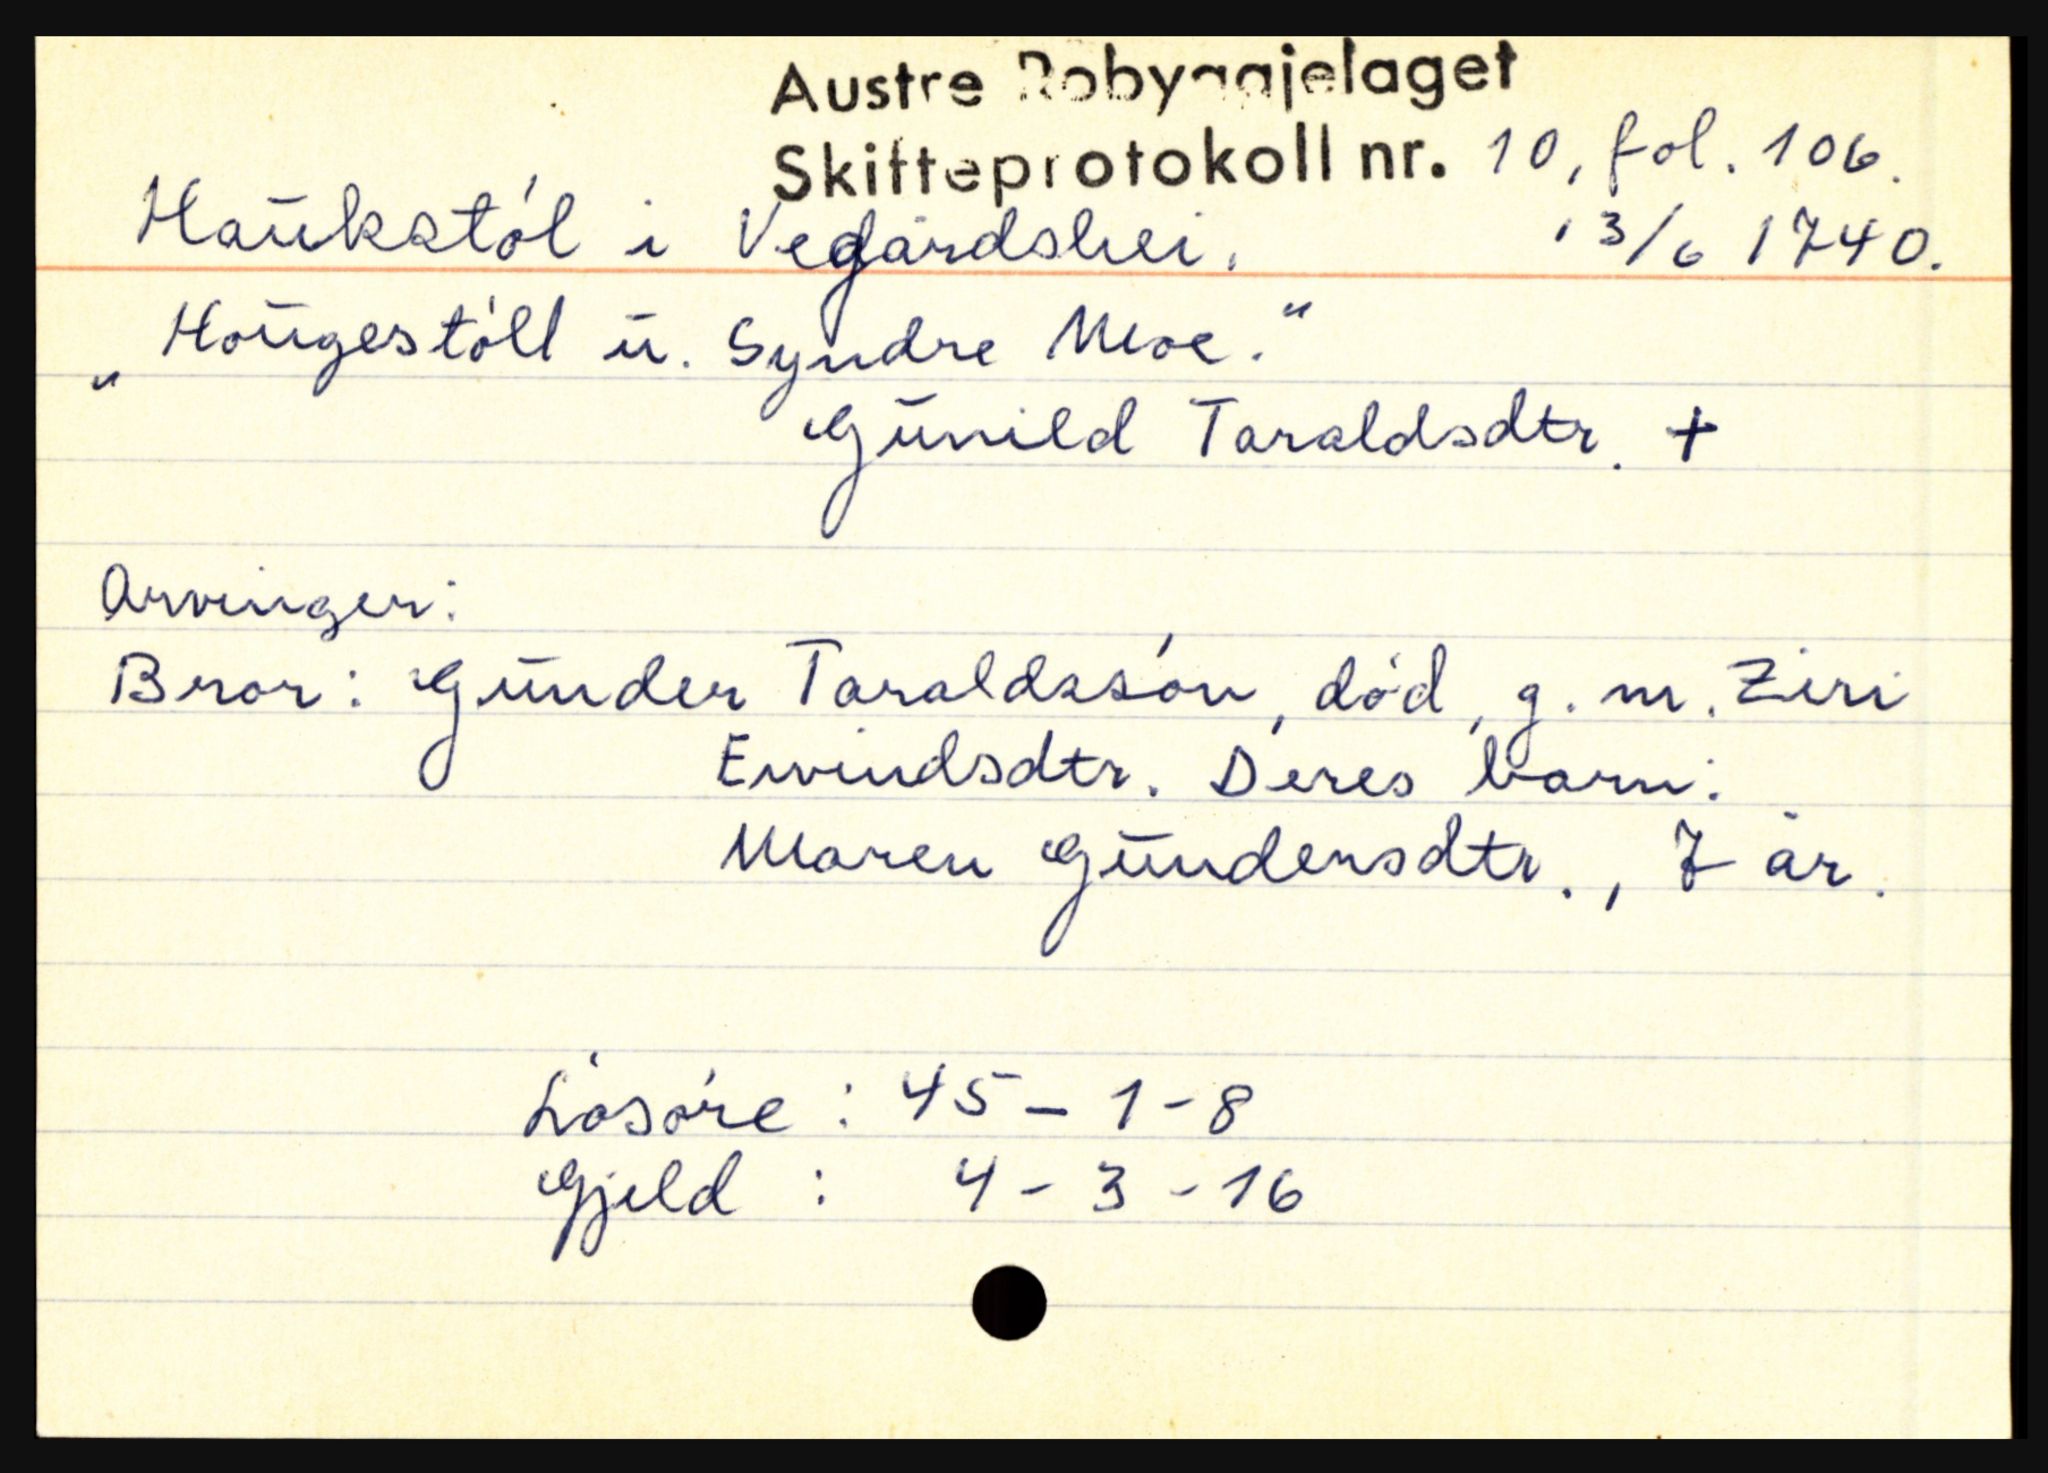 Austre Robyggjelaget
Skifteprotokoll nr. 10, fol. 106.
Haukstøl i Vegårdshei. 13/6 1740.
„Hougestøll u. Syndre Moe.“
Gunild Taraldsdtr. +
Arvinger:
Bror: Gunder Taraldssøn, død, g. m. Ziri
Eivindsdtr. Deres barn:
Maren Gundersdtr., 7 år.
Løsøre: 45 - 1 - 8
Gjeld: 4 - 3 - 16